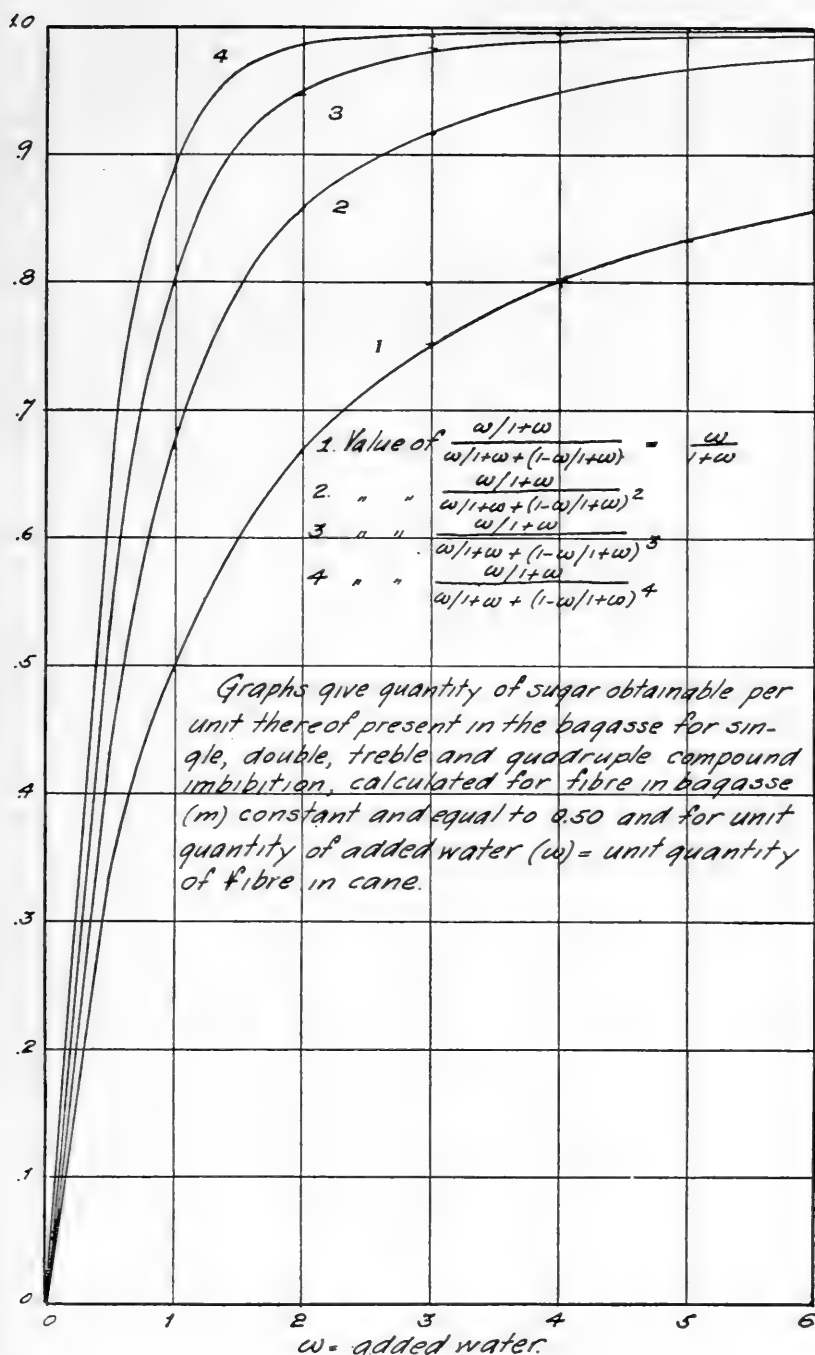 1.0
.9
.8
.7
.6
.5
.4
.3
.2
.1
0
4
3
2
1
1. Value of (ω/1+ω) / (ω/1+ω + (1-ω/1+ω)) = ω / 1+ω
2. " " (ω/1+ω) / (ω/1+ω + (1-ω/1+ω)²)
3 " " (ω/1+ω) / (ω/1+ω + (1-ω/1+ω)³)
4 " " (ω/1+ω) / (ω/1+ω + (1-ω/1+ω)⁴)
Graphs give quantity of sugar obtainable per
unit thereof present in the bagasse for sin-
gle, double, treble and quadruple compound
imbibition, calculated for fibre in bagasse
(m) constant and equal to 0.50 and for unit
quantity of added water (ω) = unit quantity
of fibre in cane.
0 1 2 3 4 5 6
ω = added water.